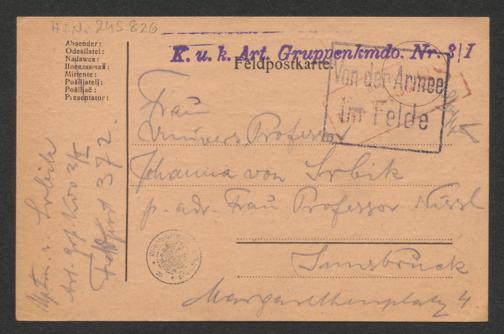 H.I.N. 245.826
K. u. k. Art. Gruppenkmdo. Nr. 3/I
Feldpostkarte.
Absender:
Odesílatel:
Nadawca:
Mittente:
Pošiljatelj:
Pošiljač:
Prezentator:
Von der Armee
im Felde
Frau
Univers. Professor
Johanna von Srbik
p. adr. Frau Professor Nissl
Innsbruck
Margarethenplatz 4
Hptm. v. Srbik
Art. Grp. Kdo 3/I
Feldpost 372.